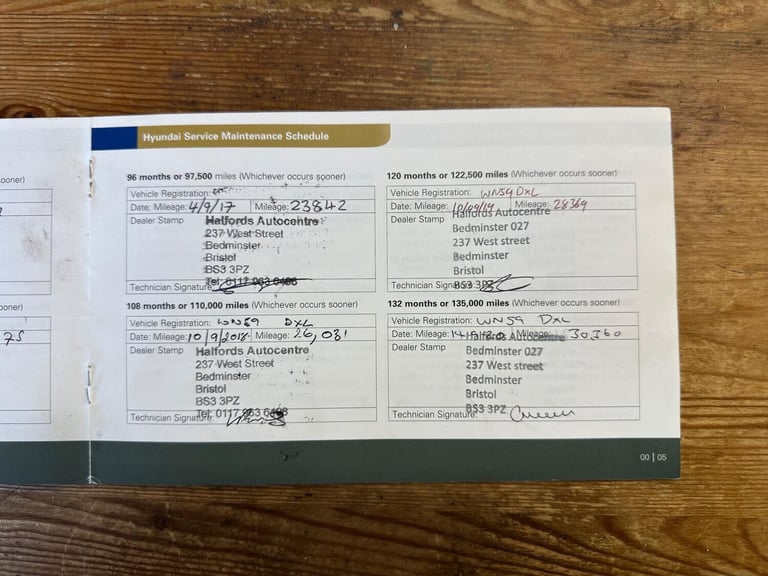 ooner)
ooner)
75
Hyundai Service Maintenance Schedule
96 months or 97,500 miles (Whichever occurs sooner)
Vehicle Registration:
Date: Mileage: 4/9/17 Mileage: 23842
Dealer Stamp Halfords Autocentre
237 West Street
Bedminster
Bristol
BS3 3PZ
Tel: 0117 963 6496
Technician Signature:
108 months or 110,000 miles (Whichever occurs sooner)
Vehicle Registration: WN59 DXL
Date: Mileage: 10/9/2018 Mileage: 26,031
Dealer Stamp Halfords Autocentre
237 West Street
Bedminster
Bristol
BS3 3PZ
Tel: 0117
Technician Signature:
120 months or 122,500 miles (Whichever occurs sooner)
Vehicle Registration: WN59 DXL
Date: Mileage: 10/09/19 Mileage: 28369
Dealer Stamp Halfords Autocentre
Bedminster 027
237 West street
Bedminster
Bristol
BS3 3PZ
Technician Signature:
132 months or 135,000 miles (Whichever occurs sooner)
Vehicle Registration: WN59 DXL
Date: Mileage: Mileage: 30,360
Halfords Autocentre
Dealer Stamp Bedminster 027
237 West street
Bedminster
Bristol
BS3 3PZ
Technician Signature:
00 | 05